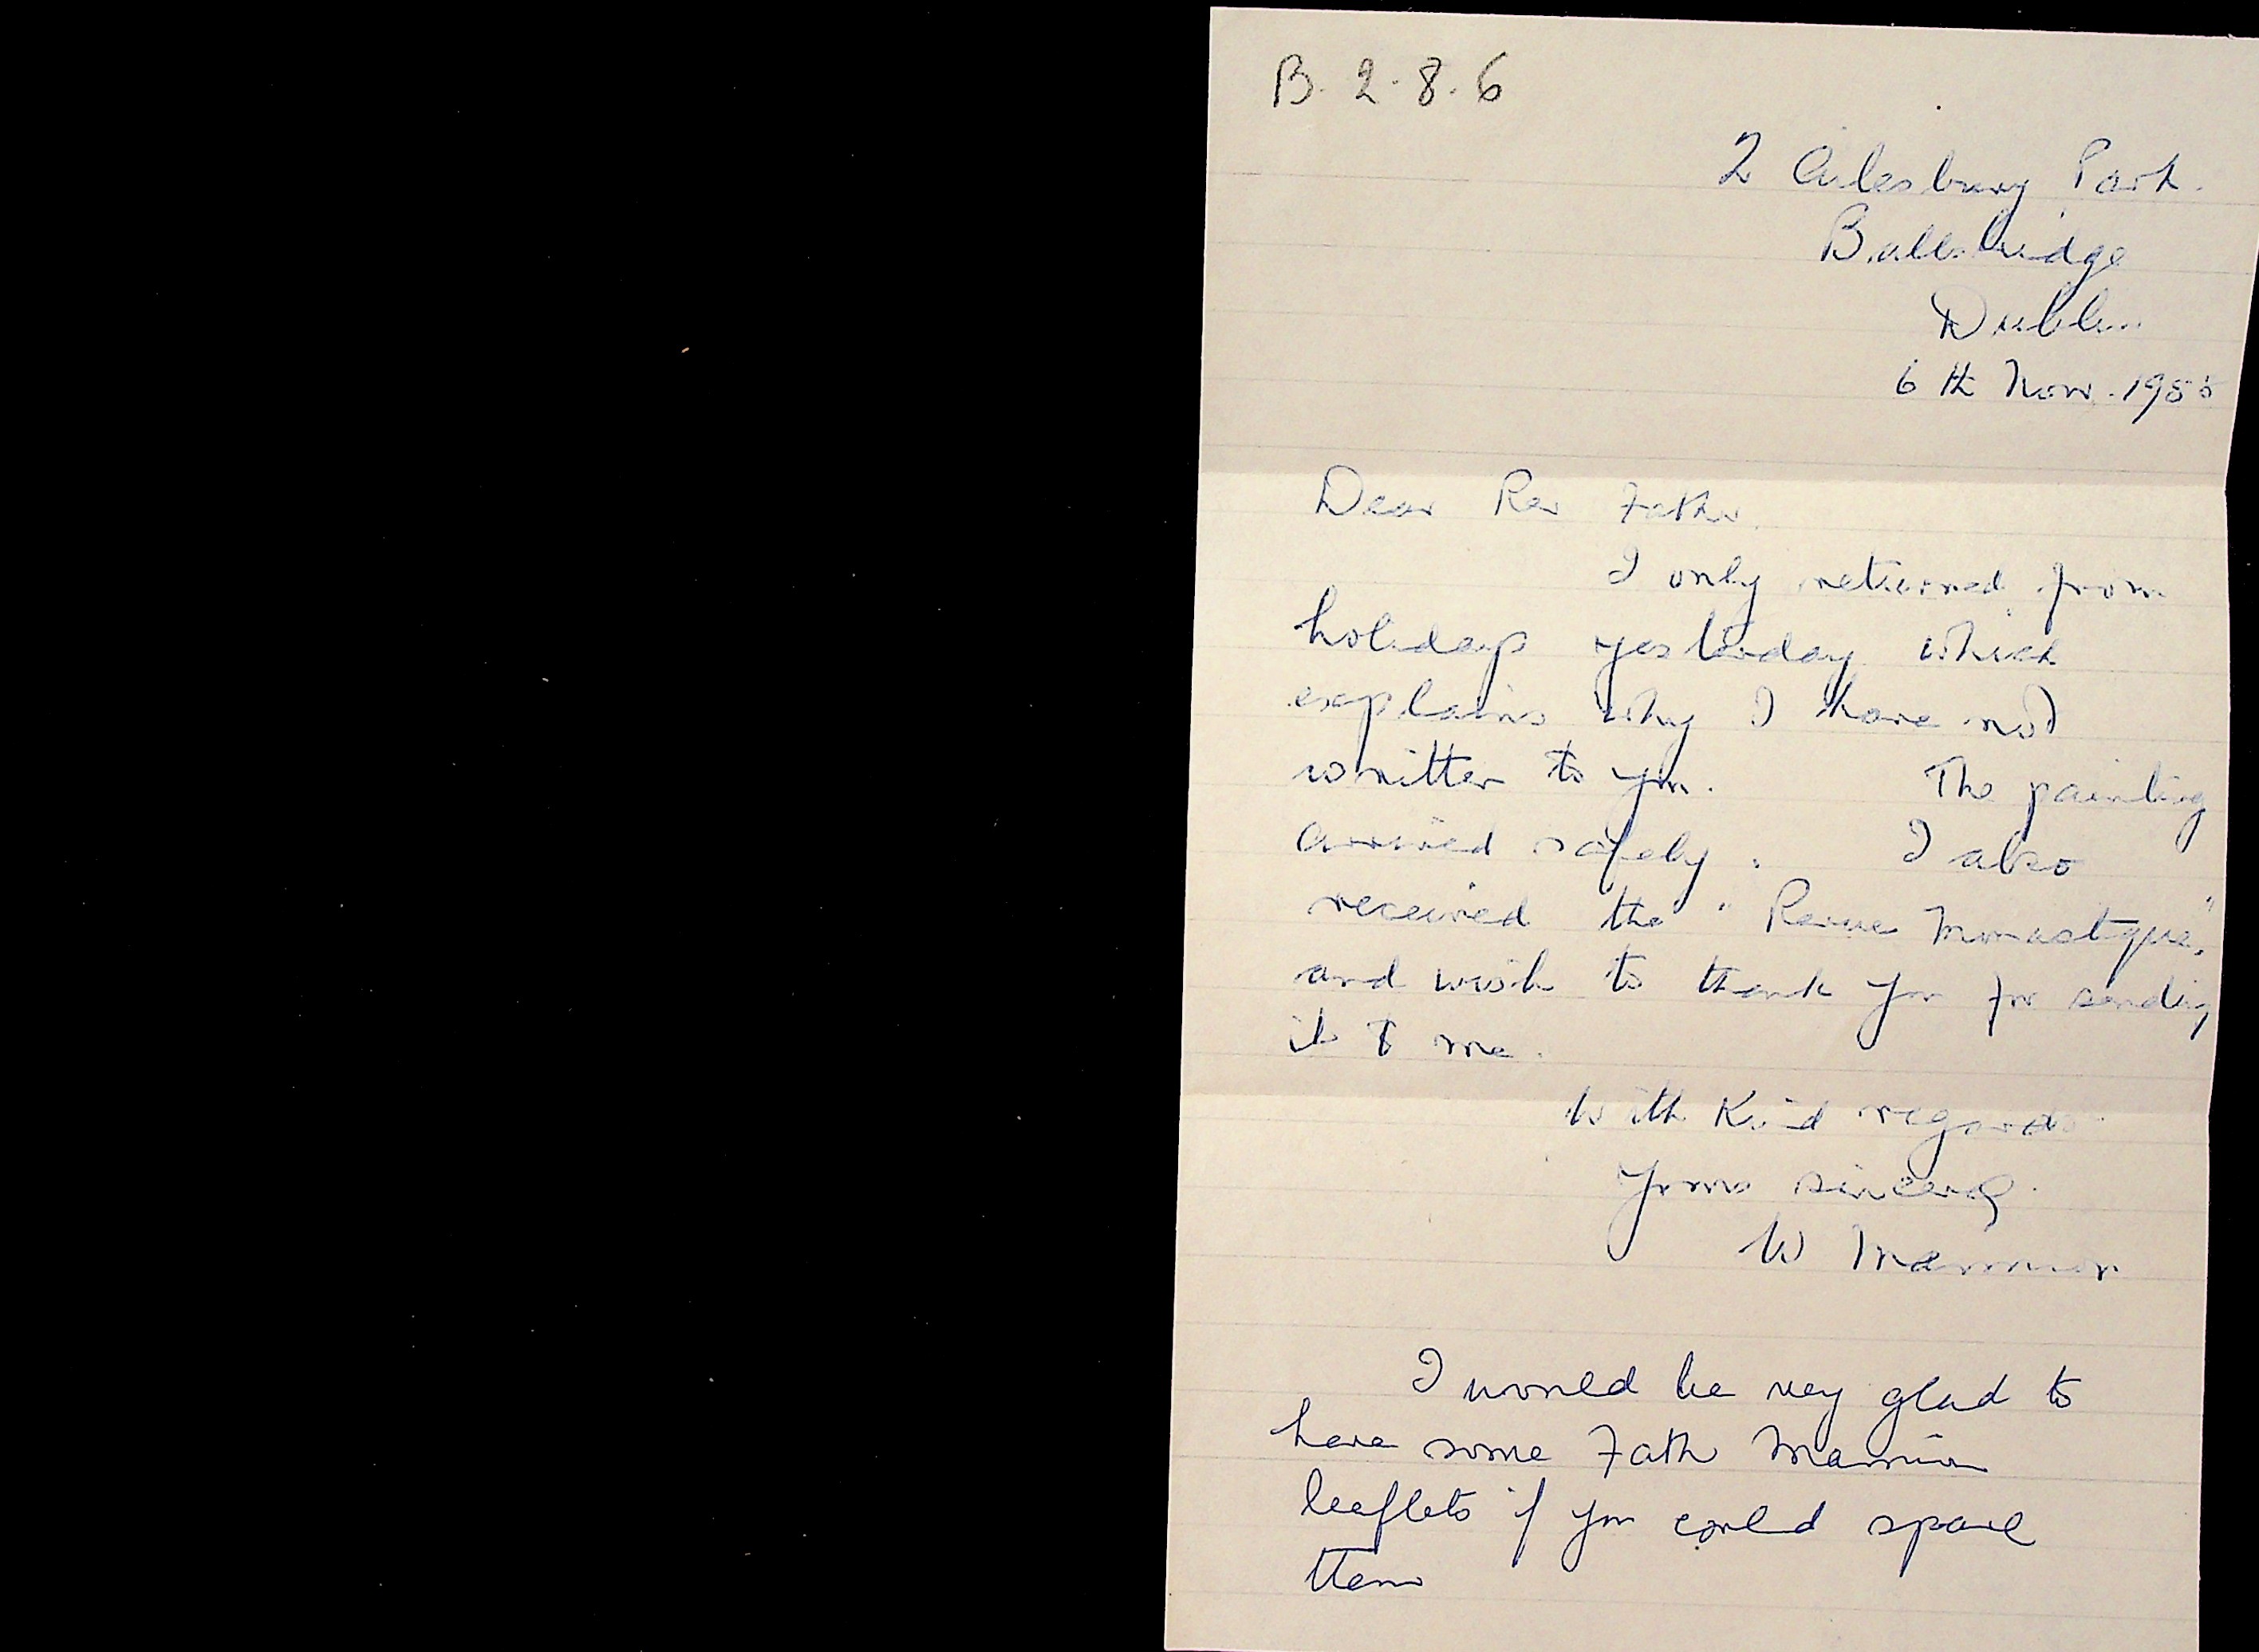 B. 2. 8. 6
2 Ailesbury Park.
Ballsbridge
Dublin
6th Nov. 1955
Dear Rev Father.
I only returned from
holidays yesterday which
explains why I have not
written to you. The painting
arrived safely. I also
received the "Revue Monastique,"
and wish to thank you for sending
it to me.
With Kind regards
Yours sincerely.
W Marmion
I would be very glad to
have some Father Marmion
leaflets if you could spare
them